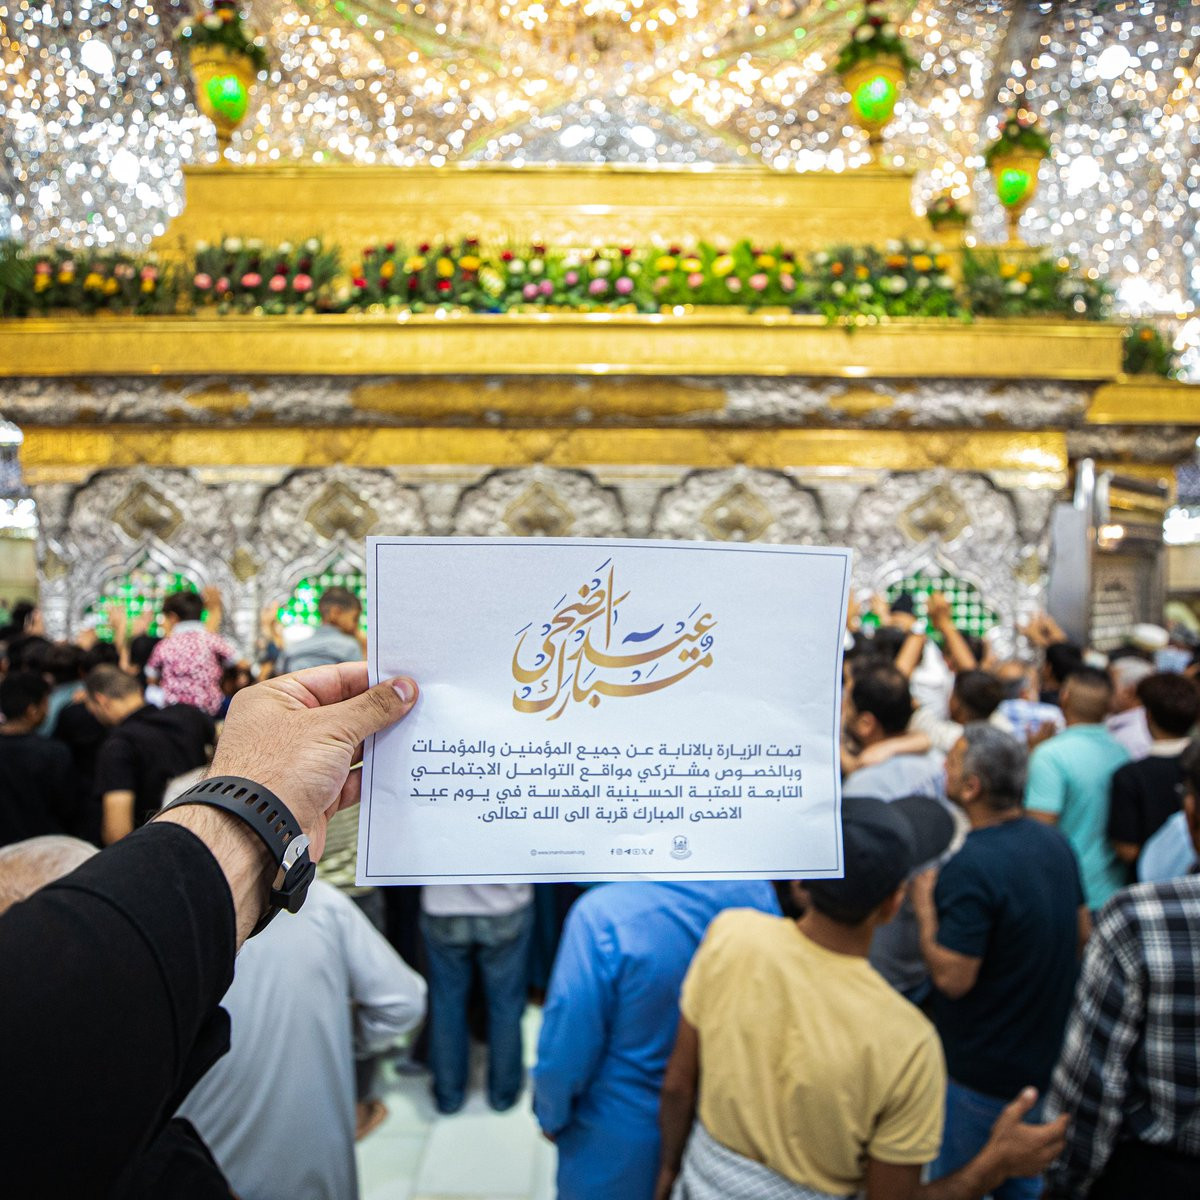 عيد اضحى
مبارك
تمت الزيارة بالانابة عن جميع المؤمنين والمؤمنات
وبالخصوص مشتركي مواقع التواصل الاجتماعي
التابعة للعتبة الحسينية المقدسة في يوم عيد
الاضحى المبارك قربة الى الله تعالى.
www.imamhussain.org